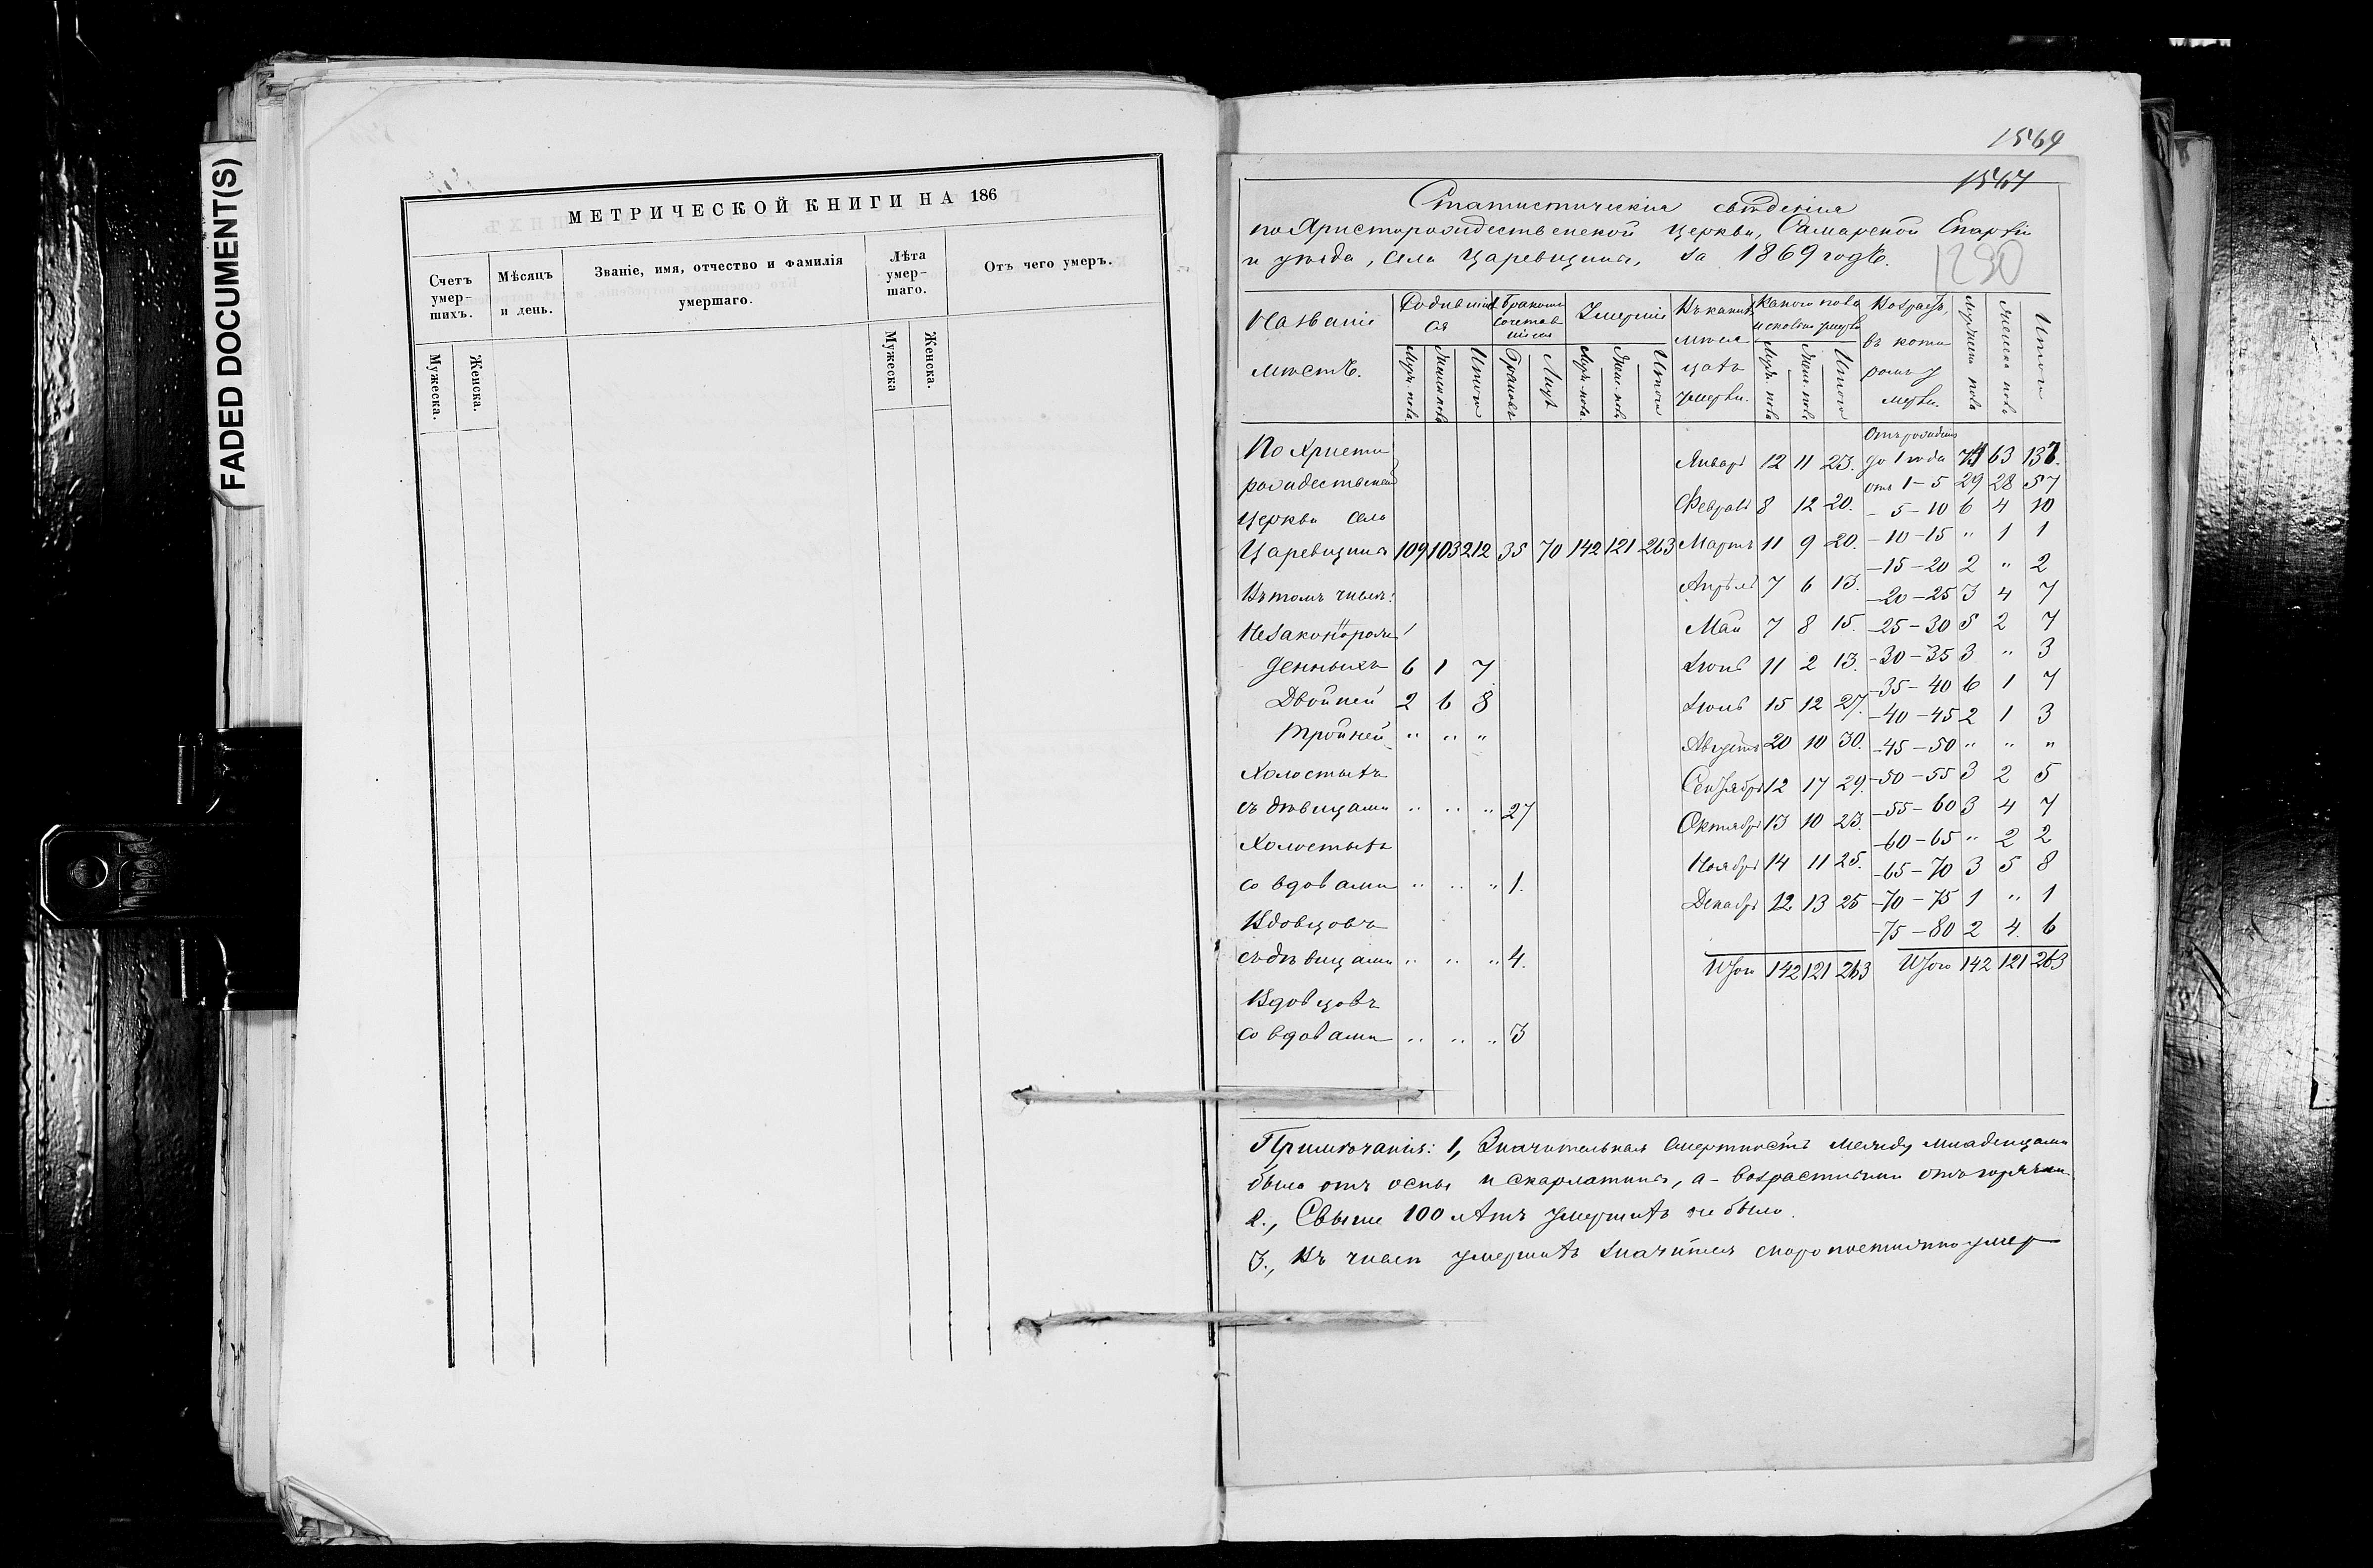 FADED DOCUMENT(S)
МЕТРИЧЕСКОЙ КНИГИ НА 186
Счетъ умер-шихъ.
Мѣсяцъ и день.
Званіе, имя, отчество и фамилія умершаго.
Лѣта умер-шаго.
Отъ чего умеръ.
Мужеска.
Женска.
Мужеска
Женска.
1569
1567
Статистическія свѣденія
по Христорождественской церкви, Самарской Епархіи
и уѣзда, села Царевщина, за 1869 годъ.
230
Названіе мѣстъ.
Родившихся
Муж. пола
Женск. пола
Итого
Бракомъ сочетавшихся
Браковъ
Лицъ
Умершіе
Муж. пола
Жен. пола
Итого
Въ какихъ мѣсяцахъ умерли.
Какого пола и сколько умерло
Муж. пола
Жен. пола
Итого
Возрастъ, въ которомъ умерли.
Мужеска пола
Женска пола
Итого
По Христорождественской церкви села
Царевщина 109 103 212 35 70 142 121 263
Въ томъ числѣ:
Незаконнорожденныхъ 6 1 7
Двойней 2 6 8
Тройней " " "
Холостыхъ
съ дѣвицами " " " 27
Холостыхъ
со вдовами " " " 1.
Вдовцовъ
съ дѣвицами " " " 4.
Вдовцовъ
со вдовами " " " 3
Январь 12 11 23.
Февраль 8 12 20.
Мартъ 11 9 20.
Апрѣль 7 6 13.
Май 7 8 15.
Іюнь 11 2 13.
Іюль 15 12 27.
Августъ 20 10 30.
Сентябрь 12 17 29.
Октябрь 13 10 23.
Ноябрь 14 11 25.
Декабрь 12 13 25
Итого 142 121 263
Отъ рожденія
до 1 года 74 63 137.
отъ 1-5 29 28 57
- 5-10 6 4 10
-10-15 " 1 1
-15-20 2 " 2
-20-25 3 4 7
-25-30 5 2 7
-30-35 3 " 3
-35-40 6 1 7
-40-45 2 1 3
-45-50 " " "
-50-55 3 2 5
-55-60 3 4 7
-60-65 " 2 2
-65-70 3 5 8
-70-75 1 " 1
-75-80 2 4. 6
Итого 142 121 263
Примѣчанія: 1, Значительная смертность между младенцами
была отъ оспы и скарлатины, а - возрастными отъ горячки.
2., Свыше 100 лѣтъ умершихъ не было.
3., Въ числѣ умершихъ значится скоропостижно умер